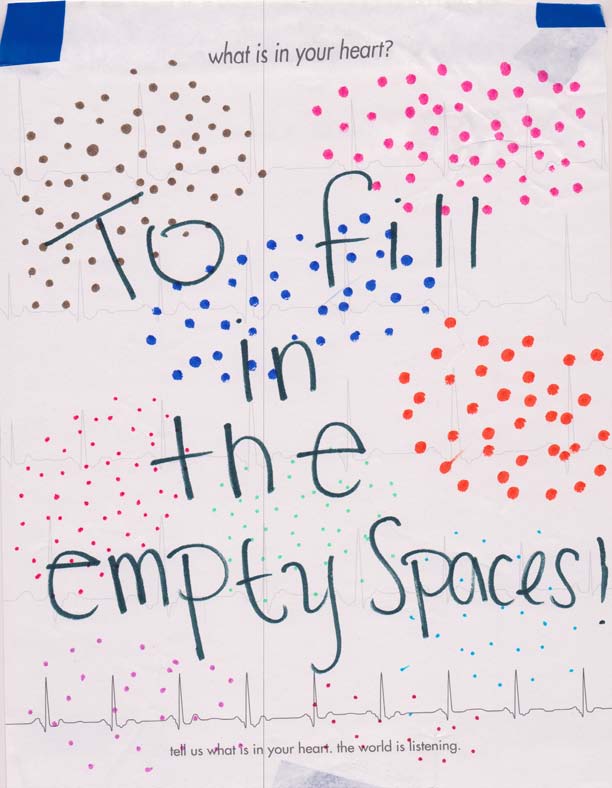 what is in your heart?
To fill
in
the
empty Spaces!
tell us what is in your heart. the world is listening.